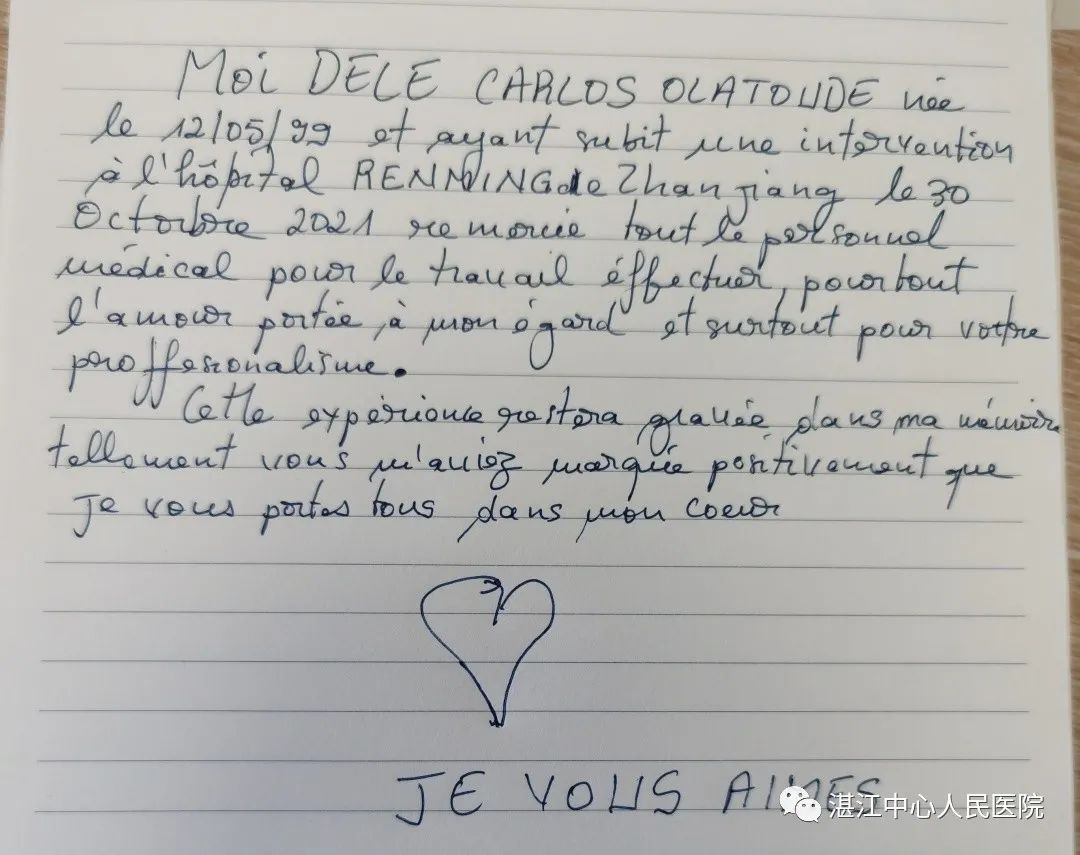 Moi DELE CARLOS OLATOUDE née
le 12/05/99 et ayant subit une intervention
à l'hôpital RENMING de Zhanjiang le 30
Octorbre 2021 remercie tout le personnel
médical pour le travail éffectuer, pour tout
l'amour portée, à mon égard et surtout pour vottre
proffesionalisme.
Cette expérience restera gravée dans ma mémoire
tellement vous m'aviez marquée positivement que
Je vous portes tous dans mon coeur
JE VOUS AIMES
湛江中心人民医院